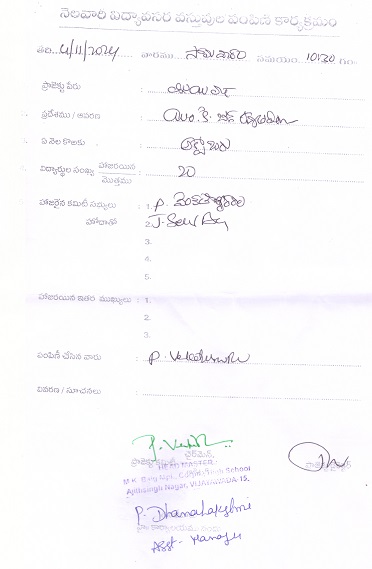 నెలవారీ విద్యావసర వస్తువుల పంపిణీ కార్యక్రమం
తేది.. 4/11/2024 వారము సోమవారం సమయం 10:30 గం.
ప్రాజెక్టు పేరు :
ప్రదేశము / ఆవరణ :
ఏ నెల కొరకు : అక్టోబరు
విద్యార్థుల సంఖ్య హాజరయిన / మొత్తము : 20
హాజరైన కమిటీ సభ్యులు : 1. P. వెంకటేశ్వరరావు
హోదాతో 2. J.
3.
4.
5.
హాజరయిన ఇతర ముఖ్యులు : 1.
2.
3.
పంపిణీ చేసిన వారు : P. Venkateswara
వివరణ / సూచనలు :
ప్రాజెక్టు ఛైర్మెన్
HEAD MASTER
M.K. Baig Mpl. Corpn. High School
Ajithsingh Nagar, VIJAYAWADA-15.
P. Dhanalakshmi
Asst- Manager